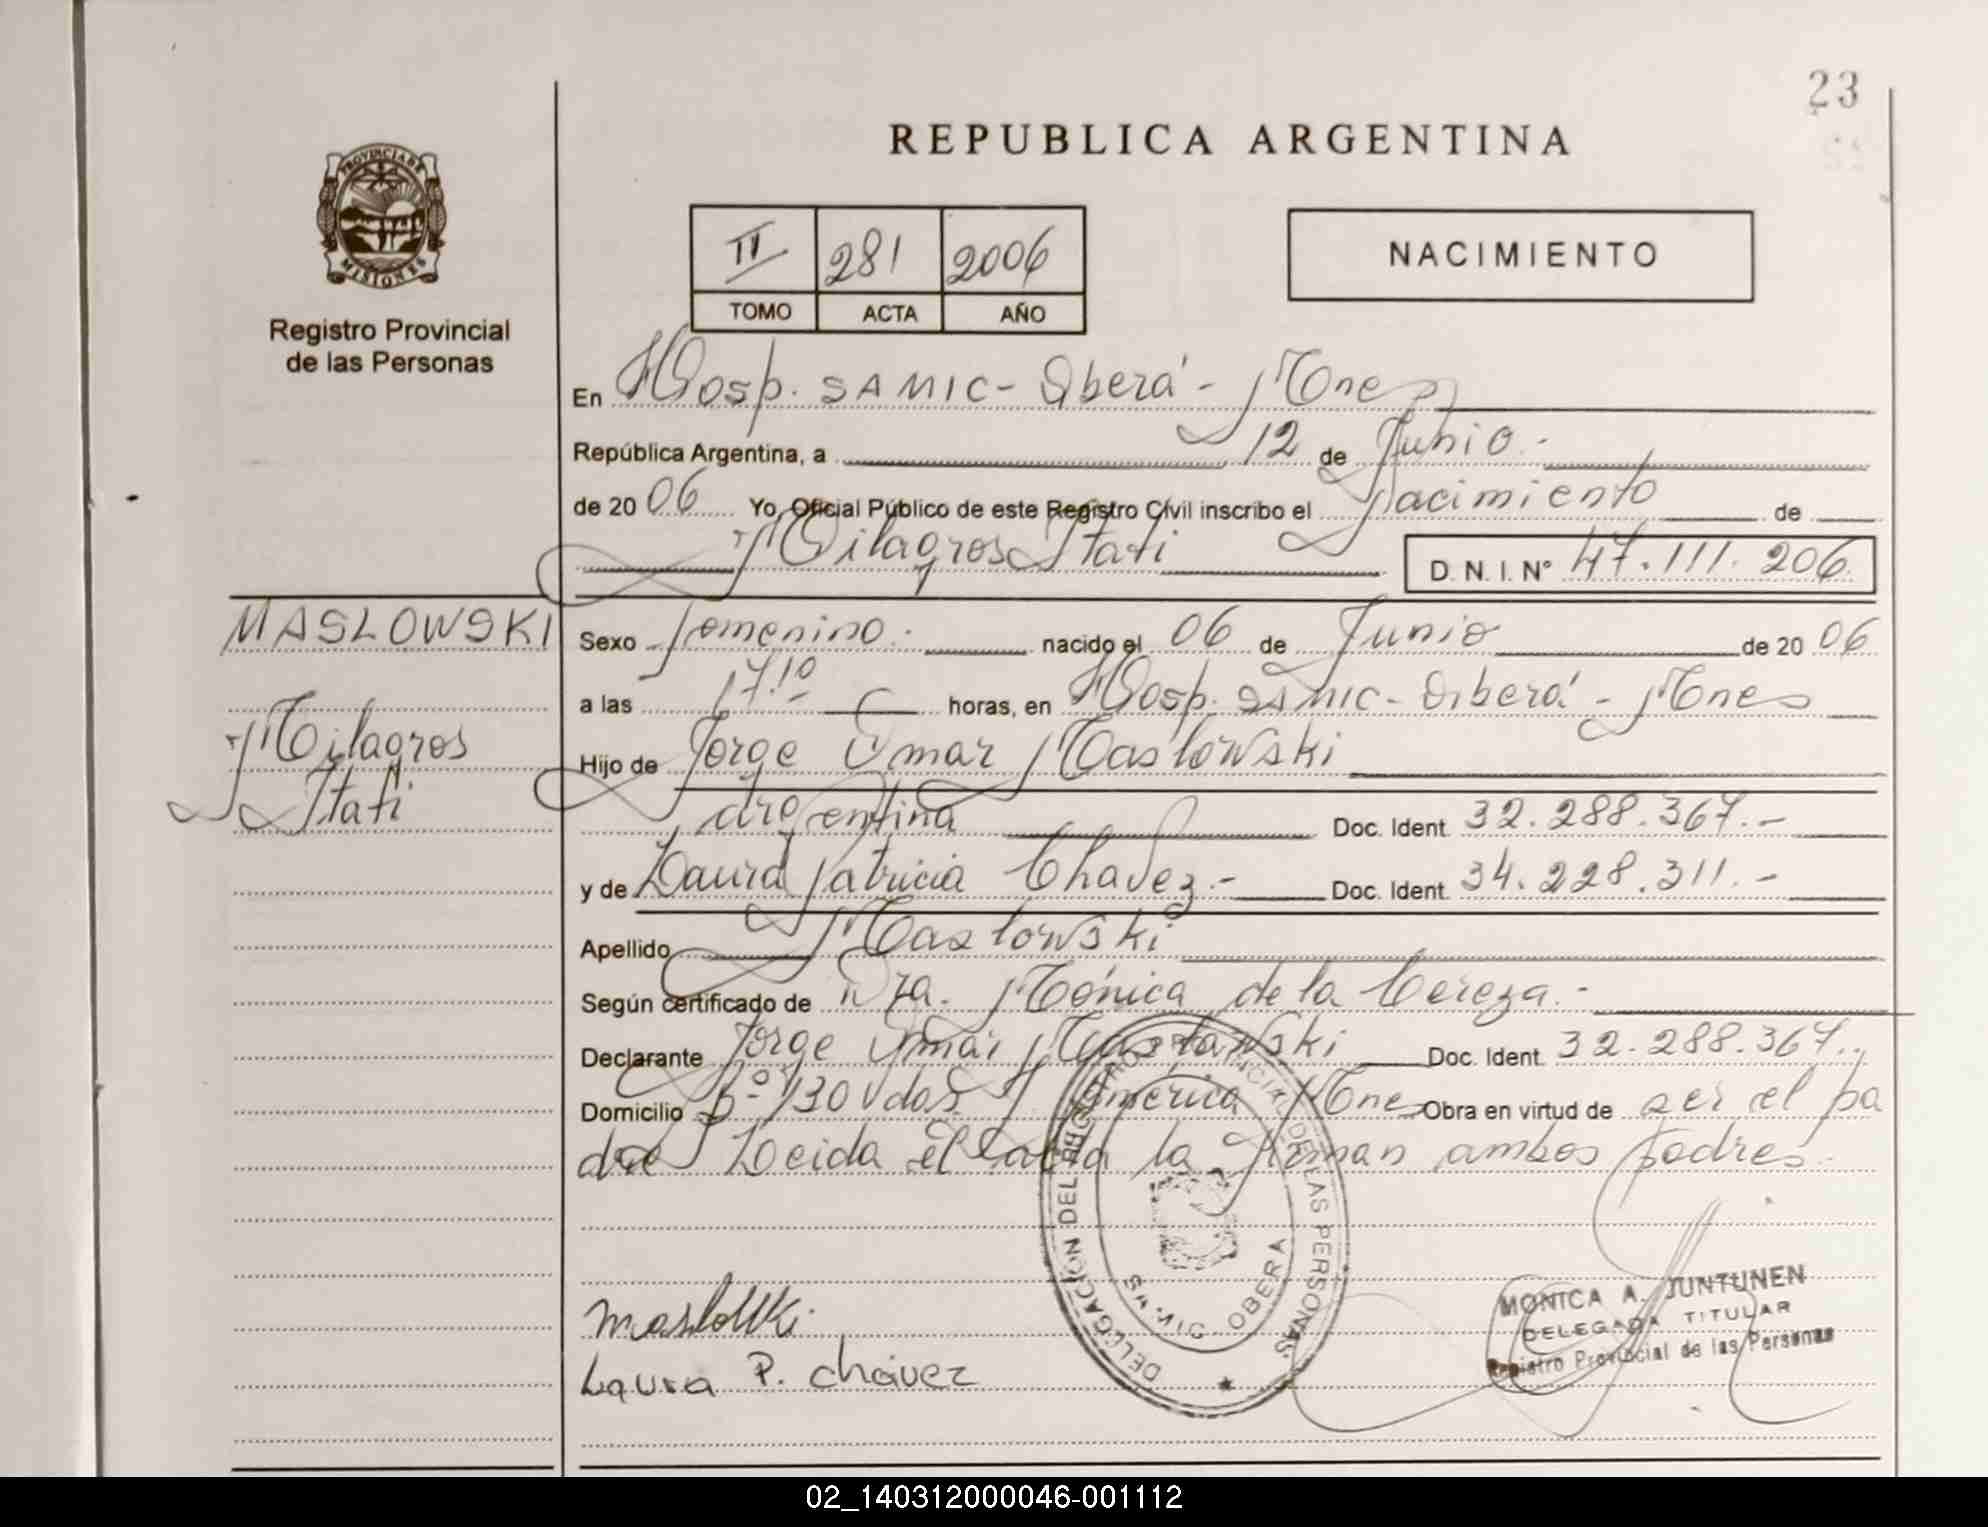 23
REPUBLICA ARGENTINA
PROVINCIA DE
MISIONES
Registro Provincial
de las Personas
II 281 2006
TOMO ACTA AÑO
NACIMIENTO
En Hosp. SAMIC - Oberá - Mnes
República Argentina, a 12 de Junio.-
de 2006 Yo, Oficial Público de este Registro Civil inscribo el Nacimiento de
Milagros Itatí D. N. I. N° 47.111.206
MASLOWSKI
Milagros
Itatí
Sexo femenino.- nacido el 06 de Junio de 2006
a las 17.10 horas, en Hosp. SAMIC - Oberá - Mnes
Hijo de Jorge Omar Maslowski
argentina Doc. Ident. 32.288.367.-
y de Laura Patricia Chavez.- Doc. Ident. 34.228.311.-
Apellido Maslowski
Según certificado de Dra. Mónica de la Cereza.-
Declarante Jorge Omar Maslowski Doc. Ident. 32.288.367.-
Domicilio 130 Vdas. América Mnes Obra en virtud de ser el pa
dre Leida el acta la firman ambos padres.
DELEGACIÓN DEL REGISTRO PROVINCIAL DE LAS PERSONAS
OBERA
Maslowski
Laura P. chávez
MONICA A. JUNTUNEN
DELEGADA TITULAR
Registro Provincial de las Personas
02_140312000046-001112